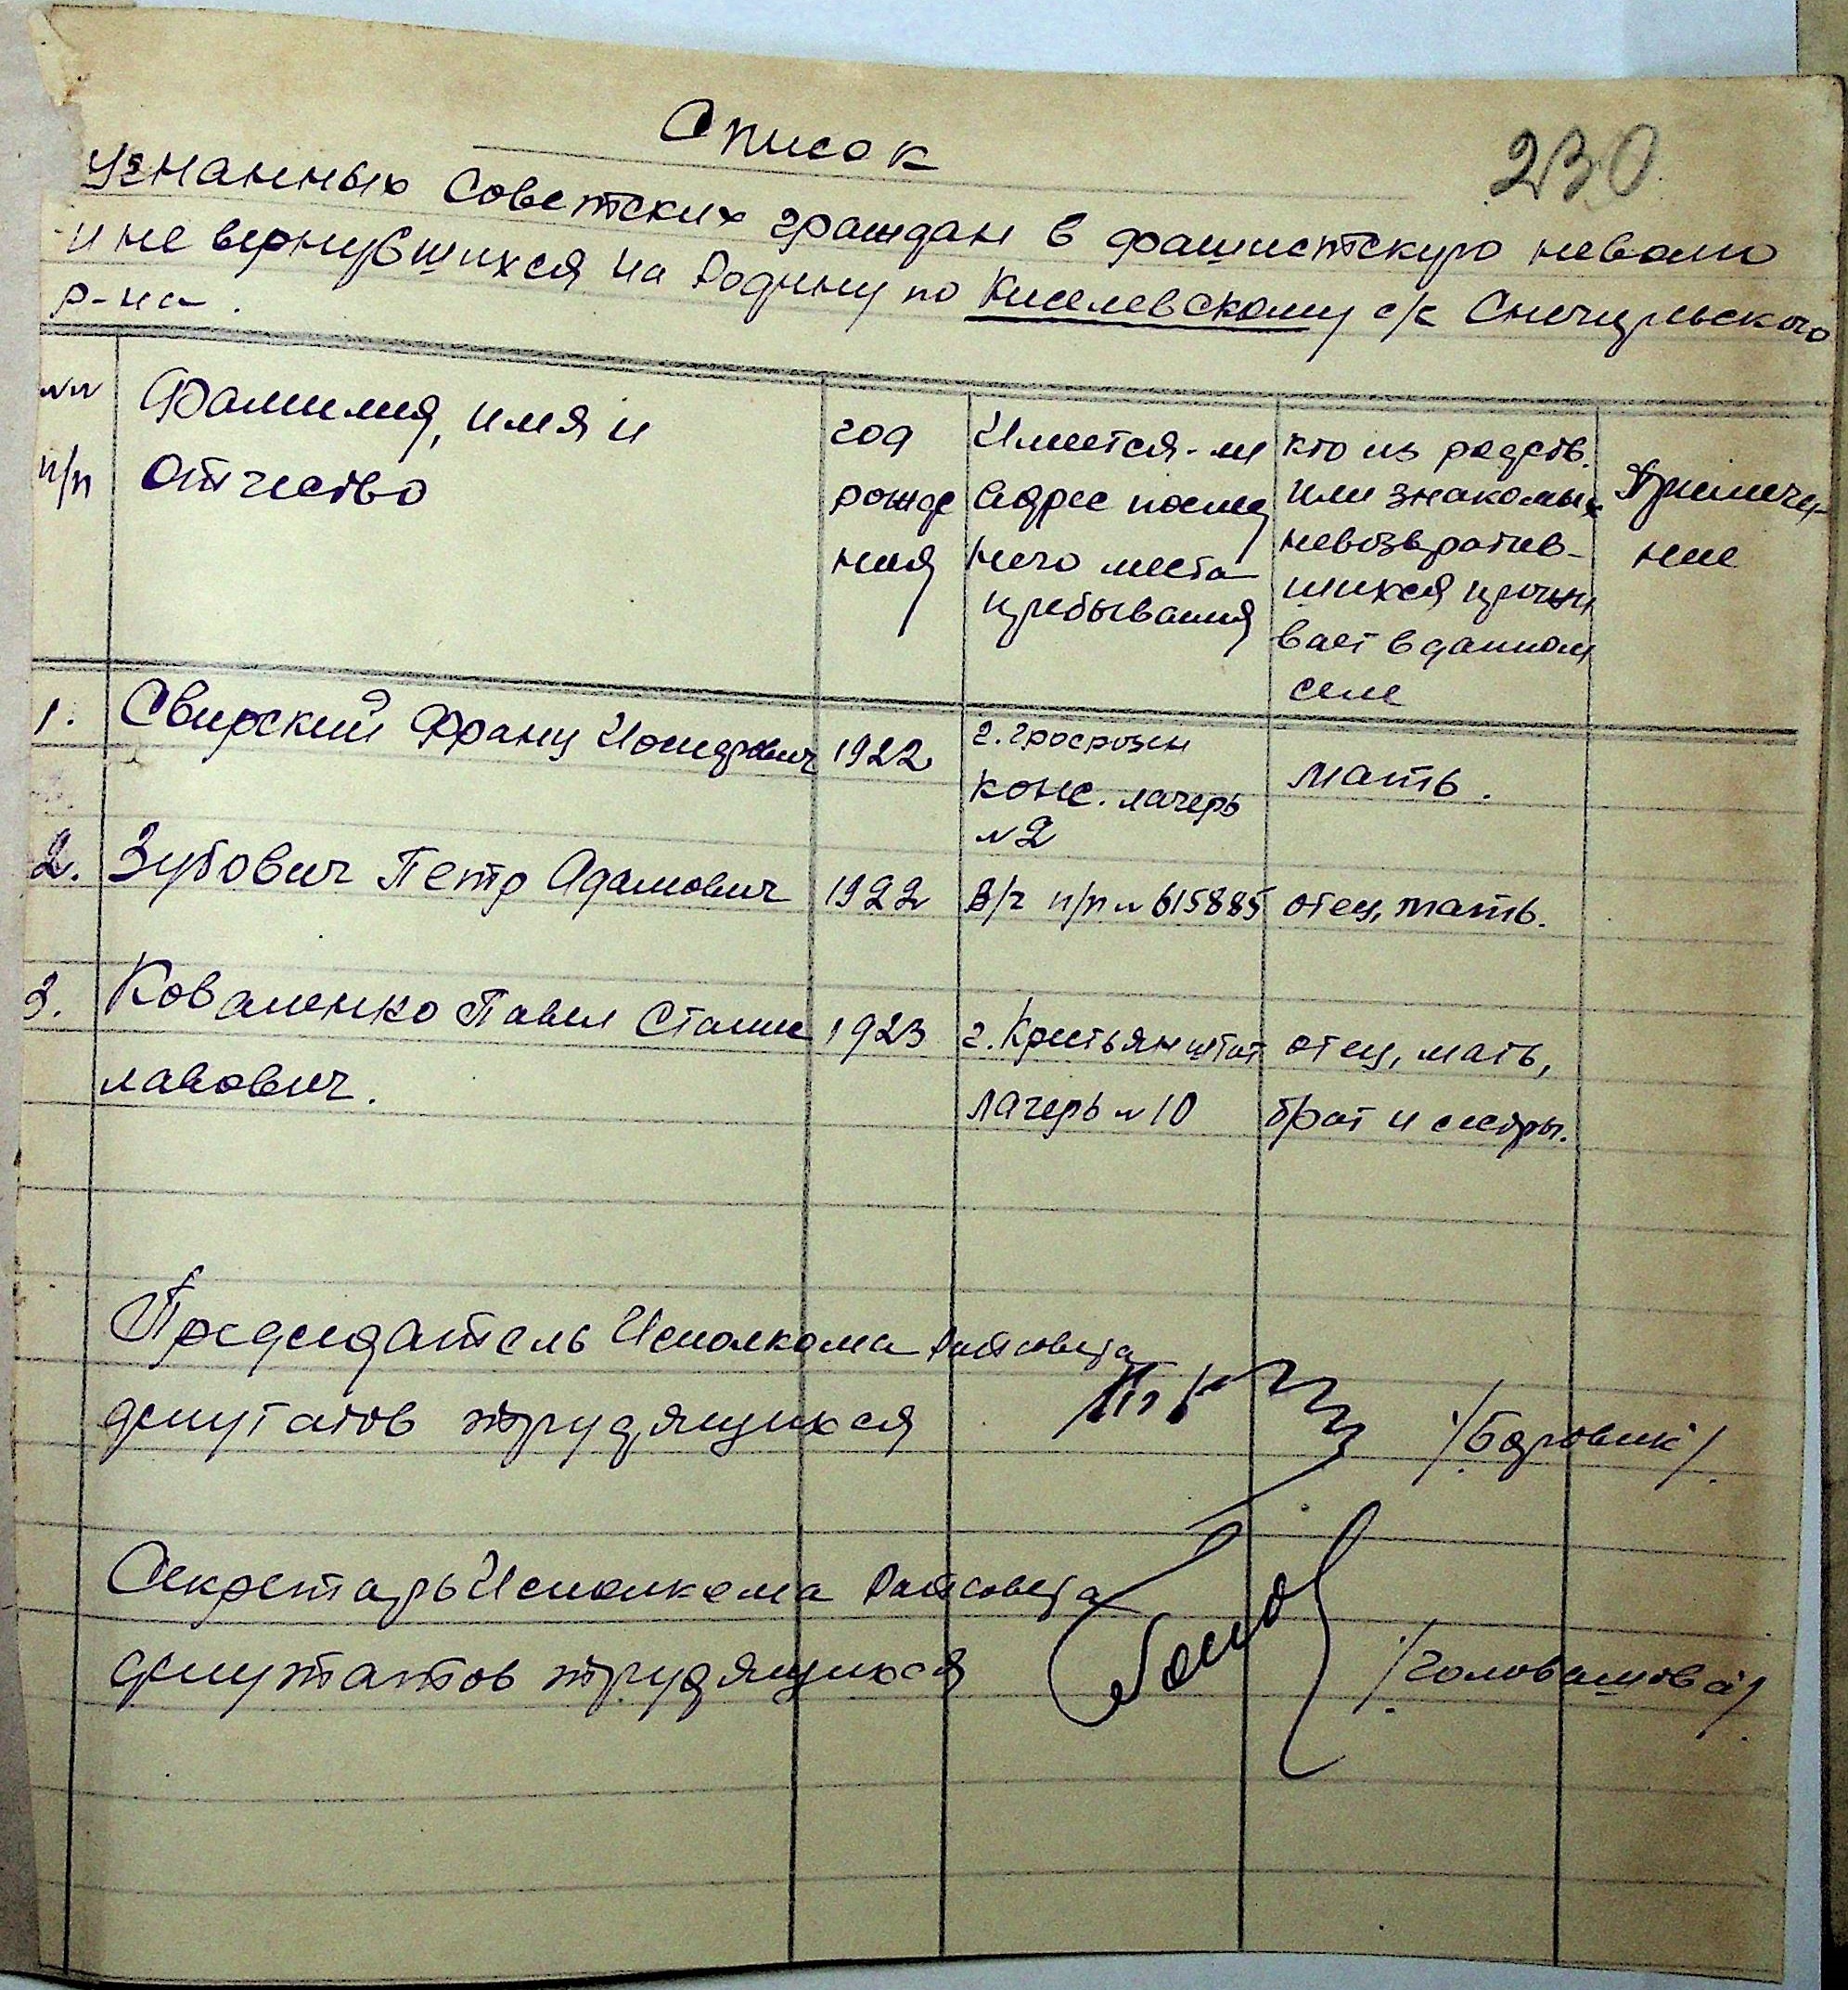 Список
230
угнанных Советских граждан в фашистскую неволю
и не вернувшихся на Родину по Киселевскому с/с Снигурьского
р-на.
№№ п/п
Фамилия, имя и отчество
год рождения
Имеется-ли адрес послед него места пребывания
кто из родств. или знакомых невозвратив-шихся прожи вает в данном селе
Примеча-ние
1. Свирский Франц Иосифович 1922 г. Гросрозен конс. лагерь №2 мать.
2. Зубович Петр Адамович 1922 в/ч п/п №615885 отец, мать.
3. Коваленко Павел Станис 1923 г. Кристьянштат отец, мать,
лавович. лагерь №10 брат и сестры.
Председатель Исполкома
депутатов трудящихся /Боровик/.
Секретарь Исполкома
депутатов трудящихся /Головашова/.